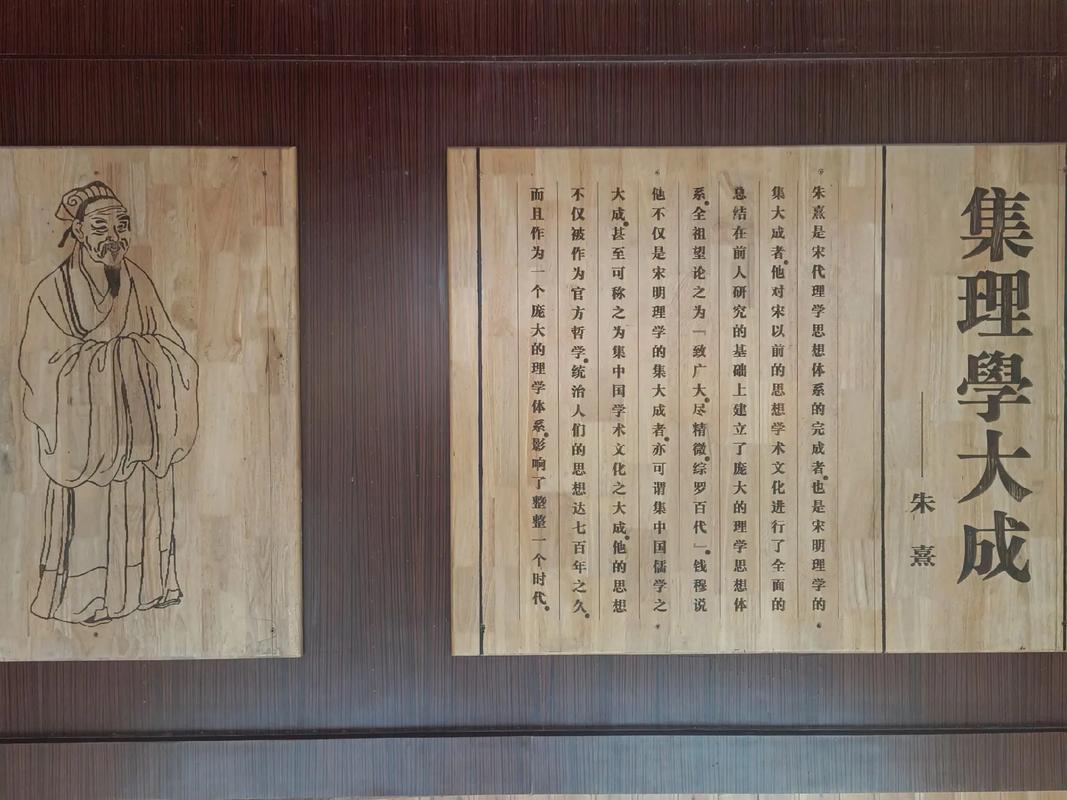 集理學大成
——朱熹
朱熹是宋代理学思想体系的完成者。也是宋明理学的
集大成者。他对宋以前的思想学术文化进行了全面的
总结在前人研究的基础上建立了庞大的理学思想体
系。全祖望论之为「致广大。尽精微。综罗百代」。钱穆说
他不仅是宋明理学的集大成者。亦可谓集中国儒学之
大成。甚至可称之为集中国学术文化之大成。他的思想
不仅被作为官方哲学。统治人们的思想达七百年之久。
而且作为一个庞大的理学体系。影响了整整一个时代。